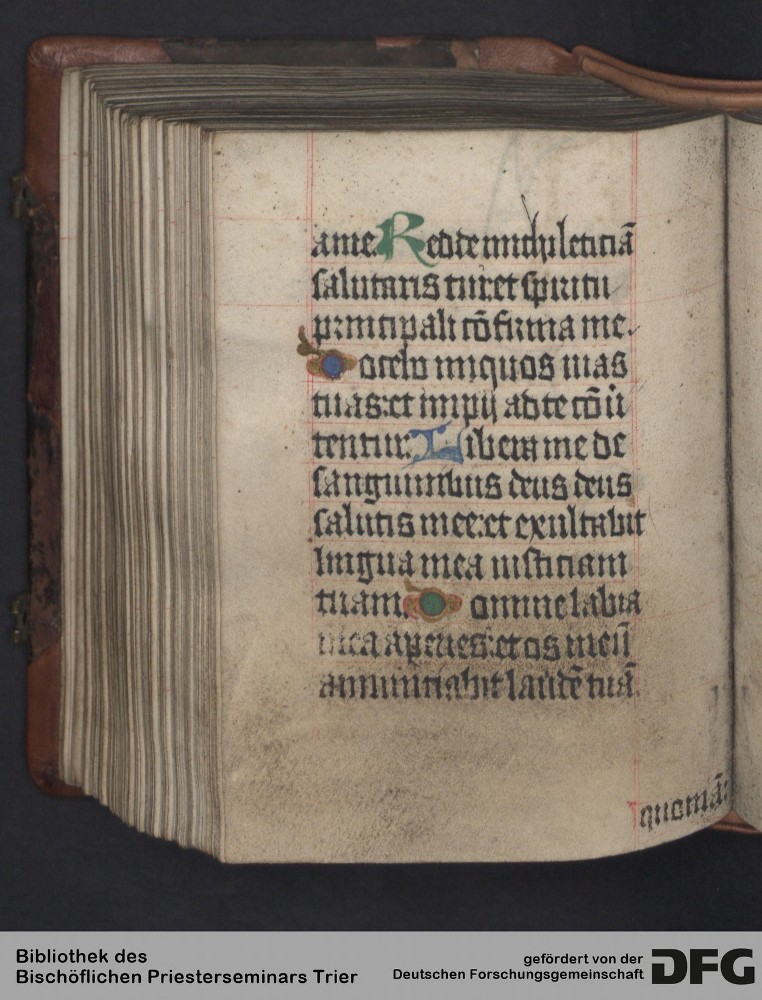 a me. Redde michi leticiā
salutaris tui: et spiritu
principali cōfirma me.
Docebo iniquos uias
tuas: et impij ad te cōuer
tentur. Libera me de
sanguinibus deus deus
salutis mee: et exultabit
lingua mea iusticiam
tuam. Domine labia
mea aperies: et os meū
annunciabit laudē tuā.
quoniā:
Bibliothek des
Bischöflichen Priesterseminars Trier
gefördert von der
Deutschen Forschungsgemeinschaft
DFG